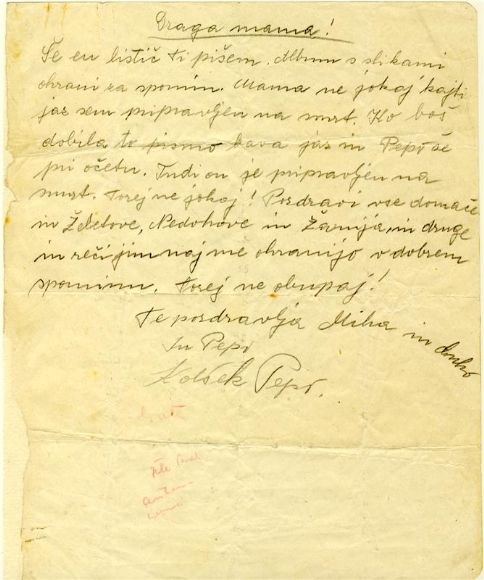 Draga mama!
Še en listič ti pišem. Album s slikami
ohrani za spomin. Mama ne jokaj kajti
jaz sem pripravljen na smrt. Ko boš
dobila to pismo bova jaz in Pepi že
pri očetu. Tudi on je pripravljen na
smrt. Torej ne jokaj! Pozdravi vse domače
in Nedohove in in druge
in reči jim naj me ohranijo v dobrem
spominu. Torej ne obupaj!
Te pozdravlja Miha in
In Pepi
Pepi.